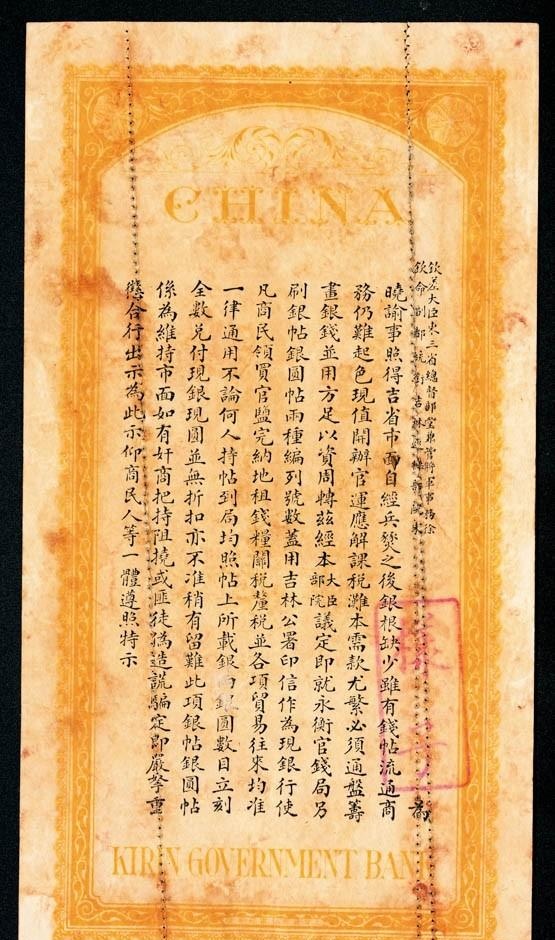 CHINA
欽差大臣東三省總督部堂兼管將軍事務徐
欽命副都統銜吉林 朱 為
曉諭事照得吉省市面自經兵燹之後銀根缺少雖有錢帖流通商
務仍難起色現值開辦官運應解課税灘本需款尤繁必須通盤籌
畫銀錢並用方足以資周轉茲經本大臣部院議定即就永衡官錢局乃
刷銀帖銀圓帖兩種編列號數蓋用吉林公署印信作為現銀行使
凡商民領買官鹽完納地租錢糧關税釐税並各項貿易往來均准
一律通用不論何人持帖到局均照帖上所載銀兩銀圓數目立刻
全數兑付現銀現圓並無折扣亦不准稍有留難此項銀帖銀圓帖
係為維持市面如有奸商把持阻撓或匪徒譌造誆騙定即嚴拏重
懲合行出示為此示仰商民人等一體遵照特示
KIRIN GOVERNMENT BANK